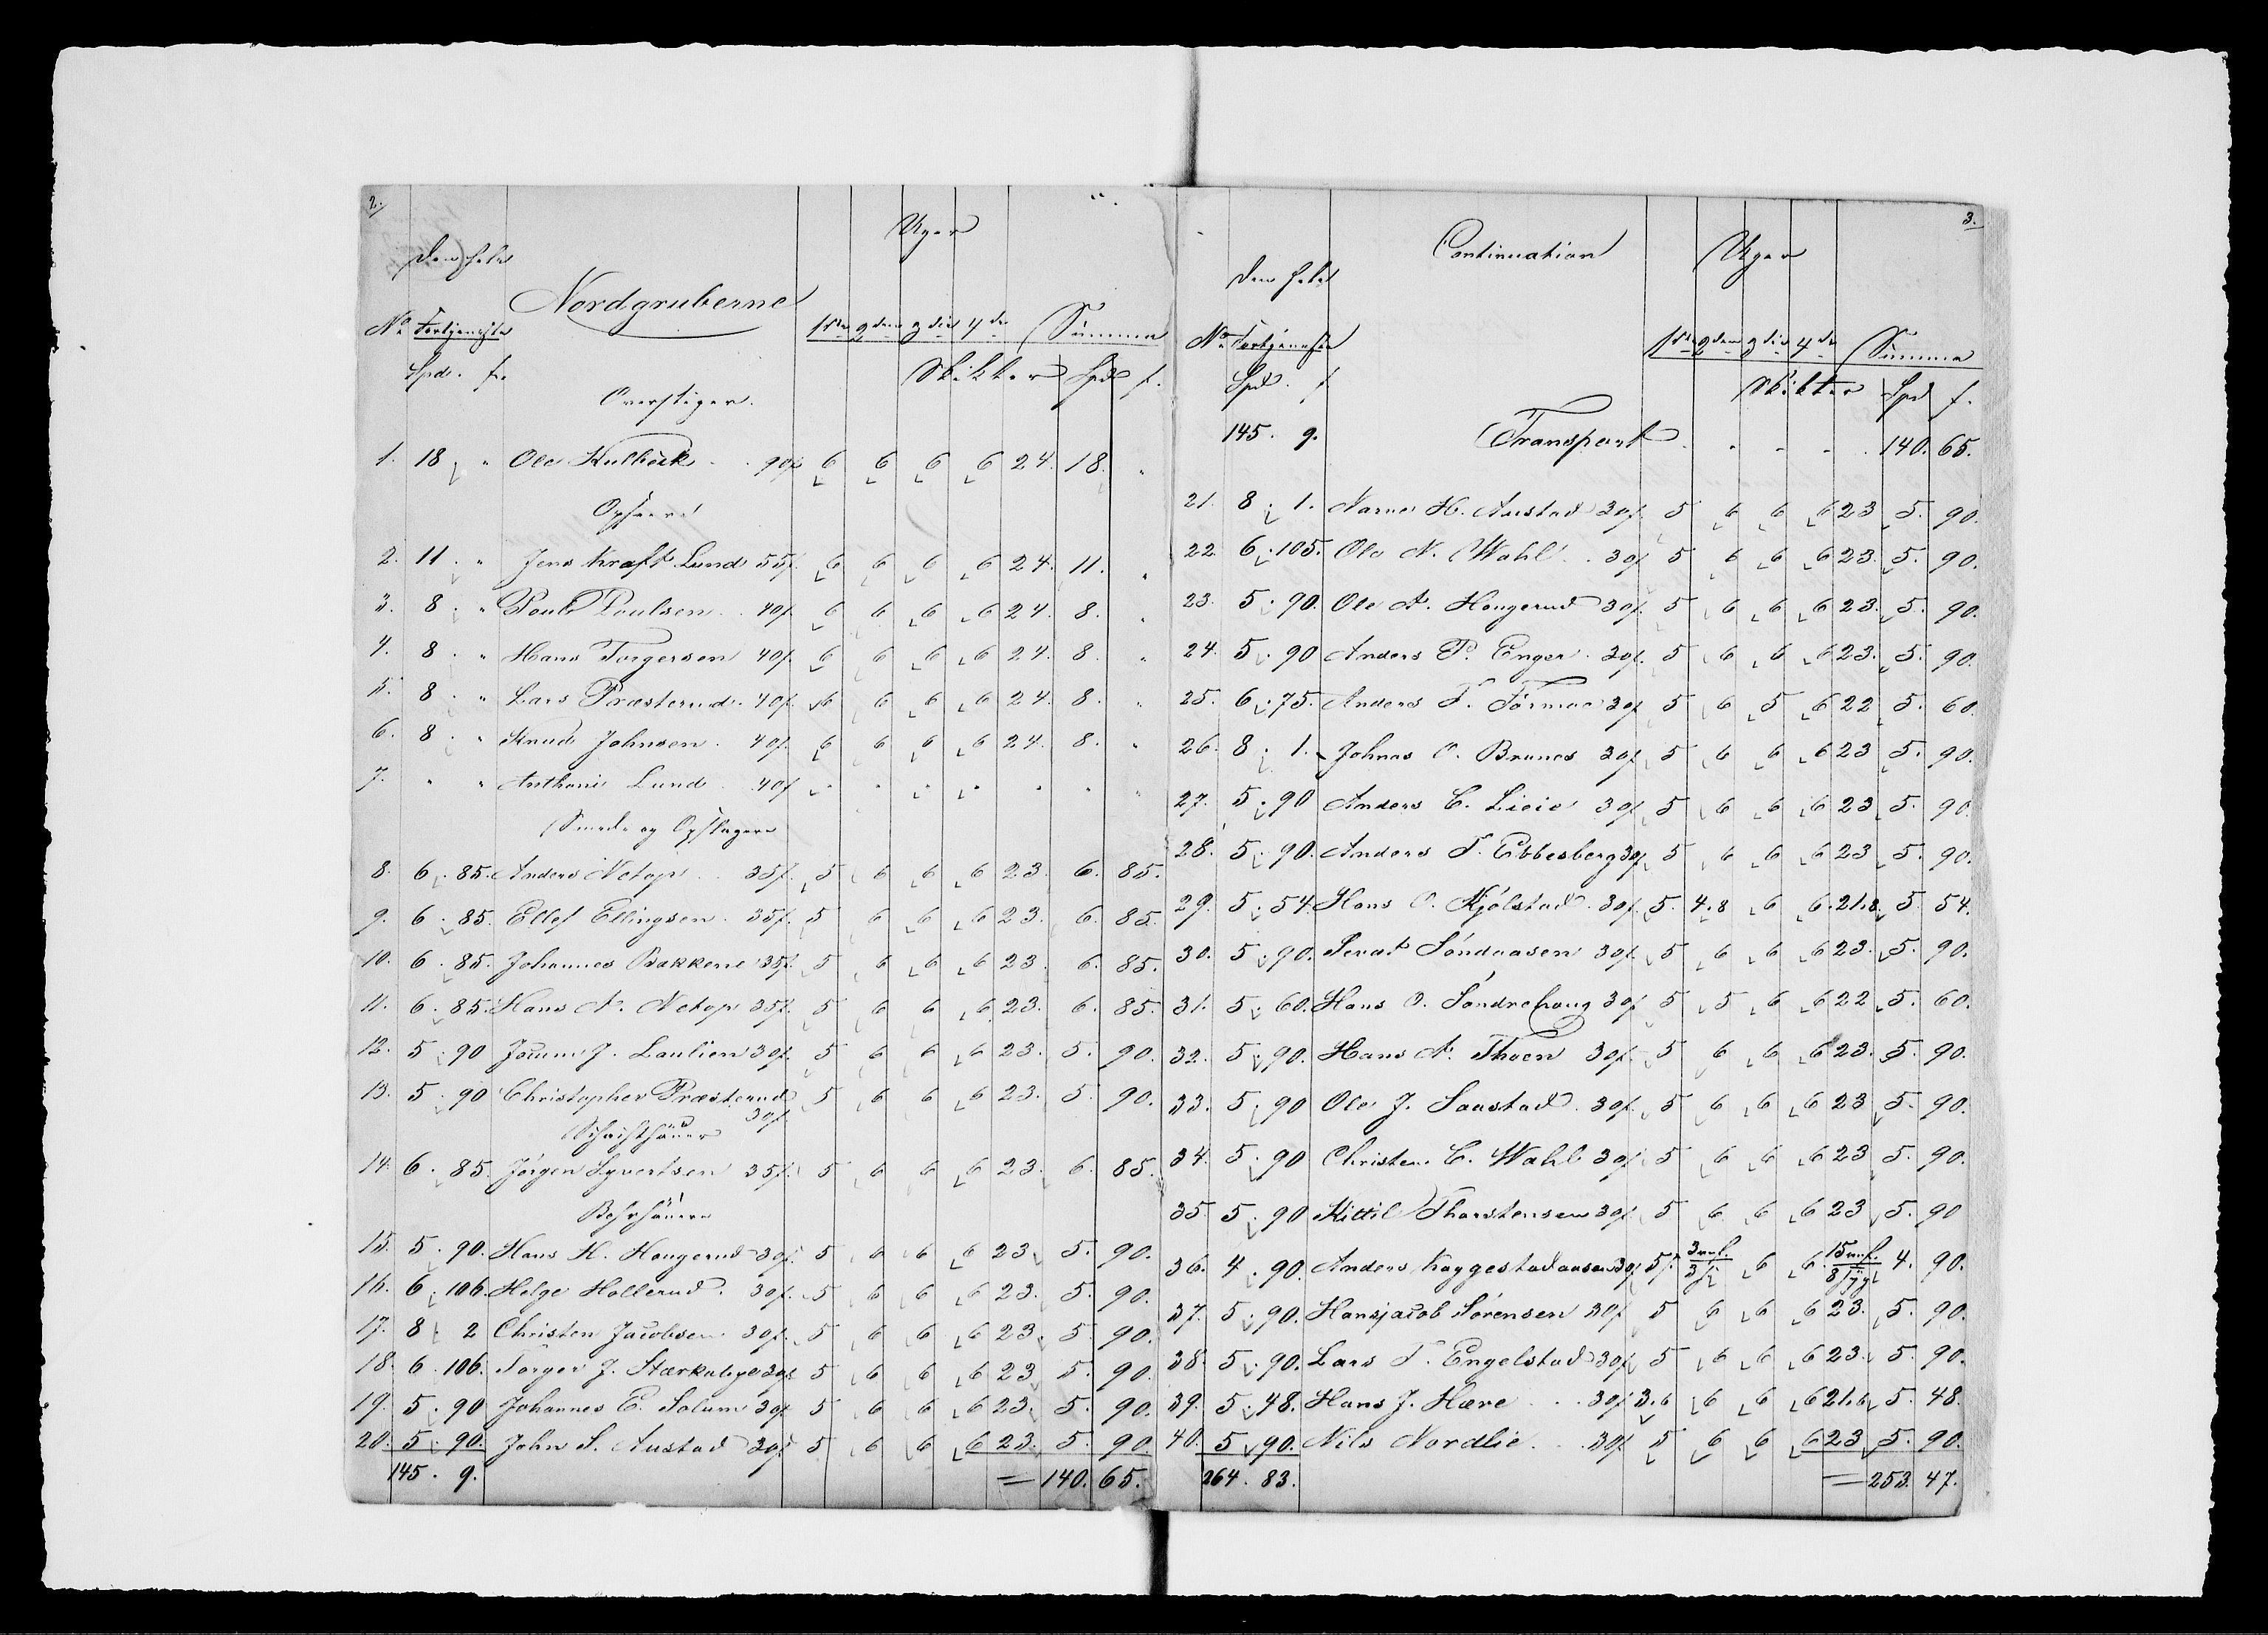 2.
Uger
Den hele
Nordgruberne
No. Fortjeneste 1ste 2den 3die 4de Summa
Spd. ſ. Skikter Spd ſ.
Overstiger.
1. 18 " Ole Kulbeck 90ſ 6 6 6 6 24. 18. "
Opseere
2. 11. " Jens Kraft Lund 55ſ. 6 6 6 6 24. 11. "
3. 8. " Poul Poulsen 40ſ. 6 6 6 6 24. 8. "
4. 8. " Hans Torgersen 40ſ. 6 6 6 6 24. 8. "
5. 8. " Lars Præsterud. 40ſ. 6 6 6 6 24. 8. "
6. 8. " Knud Johnsen. 40ſ. 6 6 6 6 24. 8. "
7. " " Anthoni Lund. 40ſ " " " " " " "
Smede og Opslagere
8. 6. 85. Anders Netop 35ſ. 5 6 6 6 23. 6. 85.
9. 6. 85. Ellef Ellingsen. 35ſ. 5 6 6 6 23. 6. 85.
10. 6. 85. Johannes Bakkene 35ſ. 5 6 6 6 23 6. 85.
11. 6. 85. Hans A. Netop 35ſ. 5 6 6 6 23. 6. 85.
12. 5. 90 J. Laulien 30ſ. 5 6 6 6 23. 5. 90.
13. 5. 90 Christopher Præsterud 5 6 6 6 23. 5. 90.
30ſ.
14. 6. 85. Jørgen Syvertsen 35ſ. 5 6 6 6 23. 6. 85.
Borhäuere
15. 5. 90. Hans H. Hougerud 30ſ. 5 6 6 6 23 5. 90.
16. 6. 106. Helge Hollerud. 30ſ. 5 6 6 6 23. 5. 90.
17. 8. 2 Christen Jacobsen 30ſ. 5 6 6 6 23. 5. 90.
18. 6. 106. Torger J. Stærkebye 30ſ 5 6 6 6 23 5. 90.
19. 5. 90 Johannes E. Solum 30ſ 5 6 6 6 23. 5. 90.
20. 5. 90. John S. Austad 30ſ 5 6 6 6 23. 5. 90.
145. 9. = 140. 65.
3.
Continuation Uger
Den hele
No. Fortjeneste 1ste 2den 3die 4de Summa
Spd. ſ Skikter Spd ſ.
145. 9. Transport 140. 65.
21. 8. 1. H. Austad 30ſ. 5 6 6 6 23 5. 90.
22. 6. 105. Ole N. Wahl 30ſ 5 6 6 6 23. 5. 90.
23. 5. 90. Ole A. Hougerud 30ſ. 5 6 6 6 23. 5. 90.
24. 5. 90 Anders P. Enger. 30ſ. 5 6 6 6 23. 5. 90.
25. 6. 75. Anders T. Formoe 30ſ 5 6 5 6 22 5. 60.
26. 8. 1. Johnes O. Brunes 30ſ 5 6 6 6 23 5. 90.
27. 5. 90 Anders C. Lieie 30ſ 5 6 6 6 23 5. 90.
28. 5. 90. Anders T. Ebbesberg 30ſ. 5 6 6 6 23 5. 90.
29. 5. 54. Hans O. Kjølstad. 30ſ. 5. 4.8 6 6. 21.8 5 54.
30. 5. 90. Sevat Søndaasen 30ſ. 5 6 6 6 23. 5. 90.
31. 5. 60. Hans O. Søndrehoug 30ſ 5 5 6 6 22 5. 60.
32. 5. 90. Hans A. Thoen 30ſ. 5 6 6 6 23. 5. 90.
33. 5. 90 Ole J. Saustad. 30ſ. 5 6 6 6 23 5. 90.
34. 5. 90 Christen C. Wahl 30ſ 5 6 6 6 23 5. 90.
35. 5. 90 Kittil Thorstensen 30ſ. 5 6 6 6 23 5. 90
36. 4. 90. Anders Kaggestadaasen 30ſ 5 6 6 4. 90.
37. 5. 90. Hansjacob Sørensen 30ſ 5 6 6 6 23. 5. 90.
38. 5. 90. Lars T. Engelstad 30ſ. 5 6 6 6 23. 5. 90.
39. 5. 48. Hans J. Hære 30ſ 3.6 6 6 6 21.6 5. 48.
40. 5. 90. Nils Nordlie 30ſ 5 6 6 6 23 5. 90.
264. 83. = 253. 47.